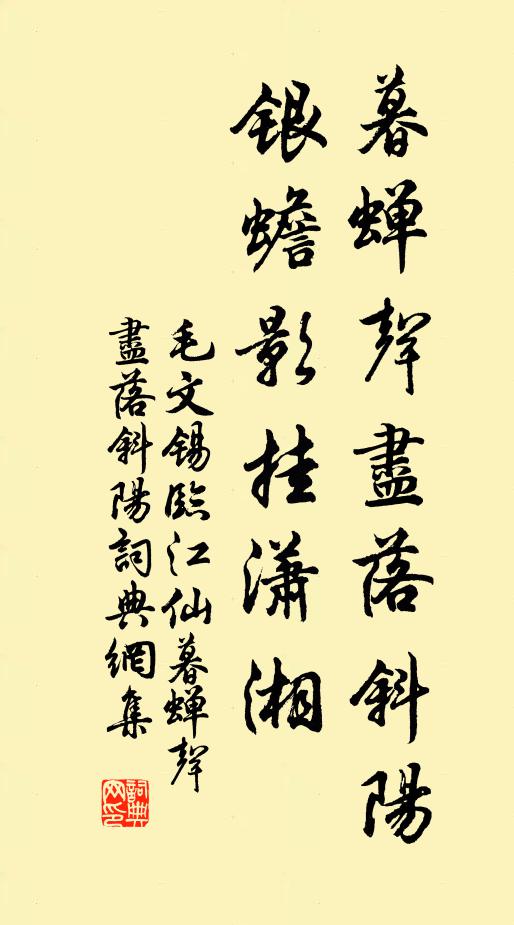 暮蟬聲盡落斜陽
銀蟾影挂瀟湘
毛文锡臨江仙暮蟬聲
盡落斜陽詞典網集
詞典
网印